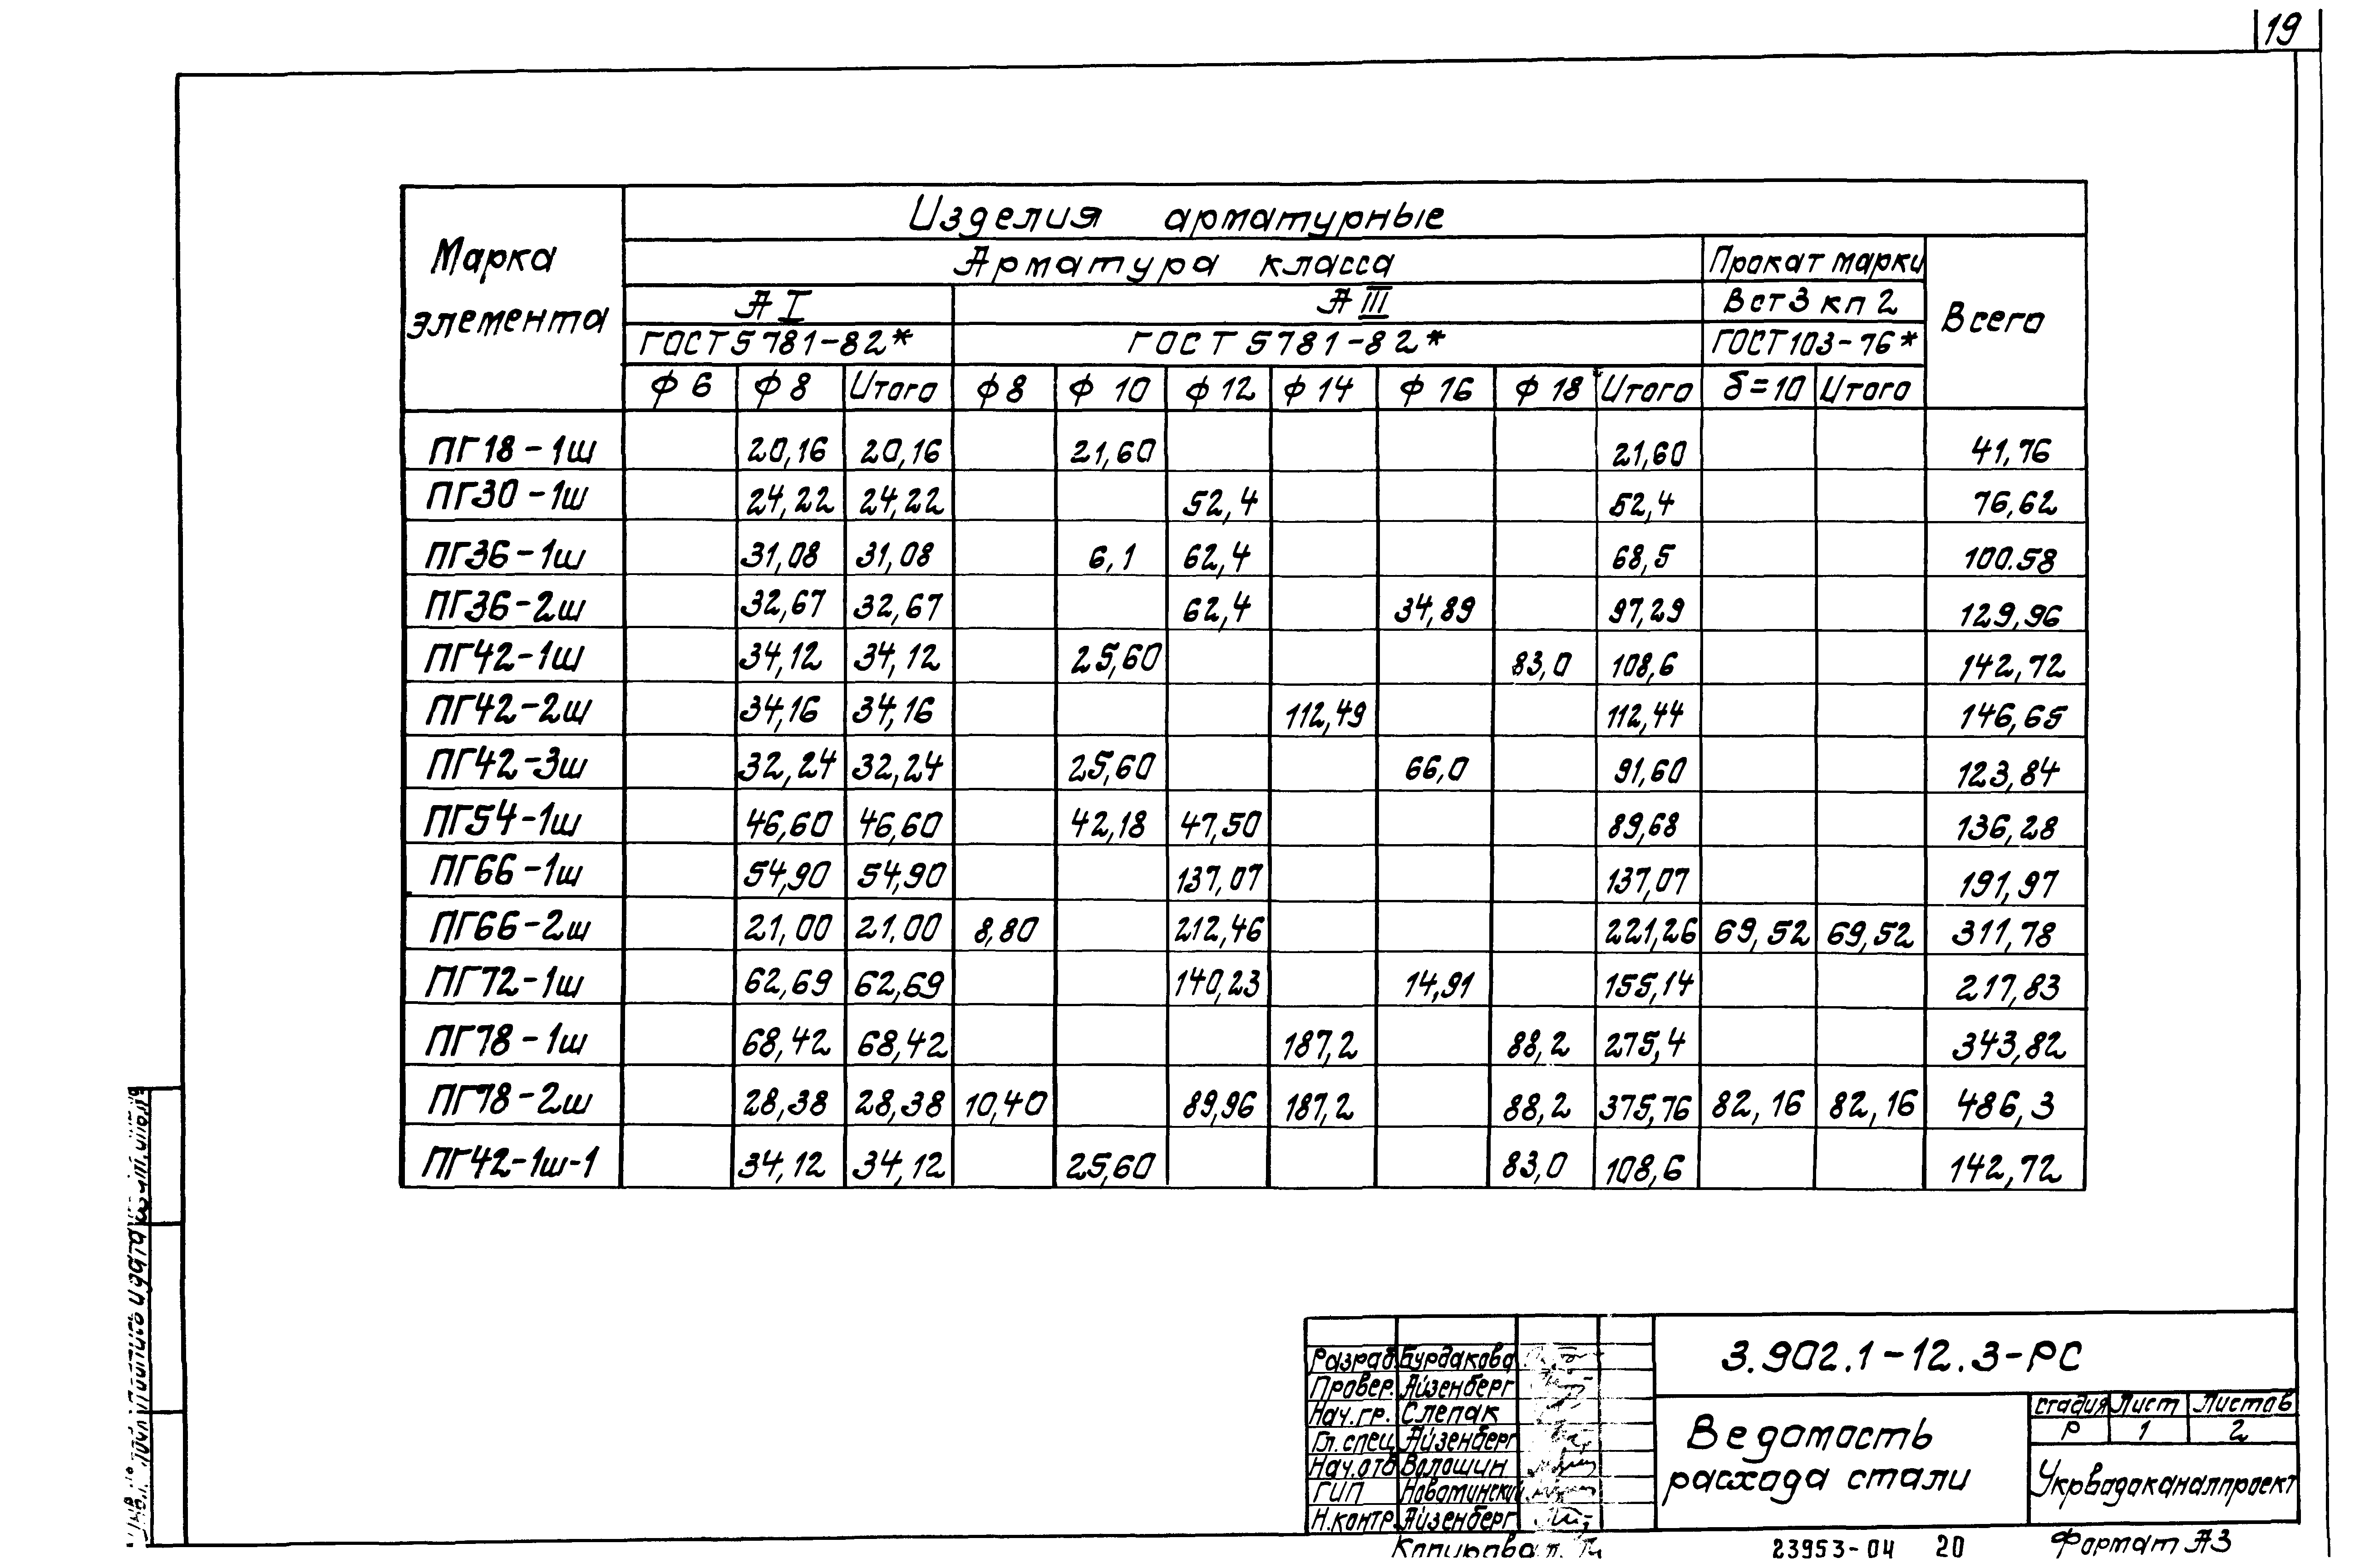 19
Изделия арматурные
Марка элемента
Арматура класса
Прокат марки
Всего
А I
А III
Вст3 кп 2
ГОСТ 5781-82*
ГОСТ 5781-82*
ГОСТ 103-76*
Ф 6 Ф 8 Итого Ф 8 Ф 10 Ф 12 Ф 14 Ф 16 Ф 18 Итого δ=10 Итого
ПГ18-1ш 20,16 20,16 21,60 21,60 41,76
ПГ30-1ш 24,22 24,22 52,4 52,4 76,62
ПГ36-1ш 31,08 31,08 6,1 62,4 68,5 100.58
ПГ36-2ш 32,67 32,67 62,4 34,89 97,29 129,96
ПГ42-1ш 34,12 34,12 25,60 83,0 108,6 142,72
ПГ42-2ш 34,16 34,16 112,49 112,44 146,65
ПГ42-3ш 32,24 32,24 25,60 66,0 91,60 123,84
ПГ54-1ш 46,60 46,60 42,18 47,50 89,68 136,28
ПГ66-1ш 54,90 54,90 137,07 137,07 191,97
ПГ66-2ш 21,00 21,00 8,80 212,46 221,26 69,52 69,52 311,78
ПГ72-1ш 62,69 62,69 140,23 14,91 155,14 217,83
ПГ78-1ш 68,42 68,42 187,2 88,2 275,4 343,82
ПГ78-2ш 28,38 28,38 10,40 89,96 187,2 88,2 375,76 82,16 82,16 486,3
ПГ42-1ш-1 34,12 34,12 25,60 83,0 108,6 142,72
3.902.1-12.3-РС
Разраб. Бурдакова
Провер. Айзенберг
Нач.гр. Слепак
Гл.спец Айзенберг
Нач.отв Волошин
ГИП Новатинский
Н.контр. Айзенберг
Ведомость
расхода стали
стадия Лист Листов
Р 1 2
Укрводоканалпроект
23953-04 20
Формат А3